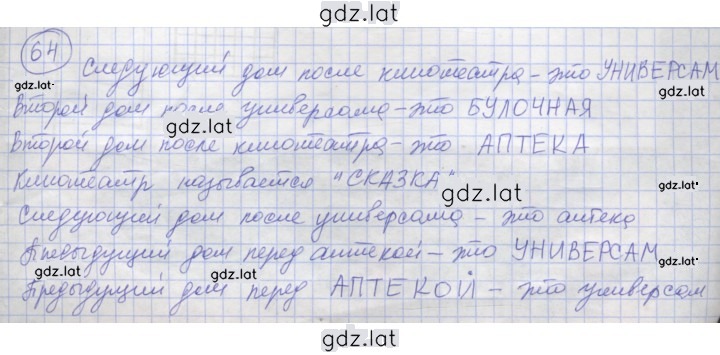 gdz.lat
64
Следующий дом после кинотеатра – это УНИВЕРСАМ
gdz.lat gdz.lat
Второй дом после универсама – это БУЛОЧНАЯ
gdz.lat
Второй дом после кинотеатра – это АПТЕКА
Кинотеатр называется "СКАЗКА"
gdz.lat gdz.lat gdz.lat
Следующий дом после универсама – это аптека
Предыдущий дом перед аптекой – это УНИВЕРСАМ
gdz.lat gdz.lat gdz.lat
Предыдущий дом перед АПТЕКОЙ – это универсам
gdz.lat